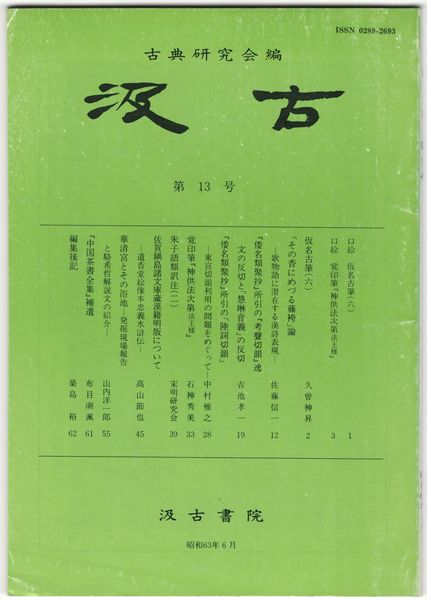 ISSN 0289-2693
古典研究会編
汲古
第 13 号
口絵 仮名古筆(六) 1
口絵 覚印筆『神供法次第法王様』 3
仮名古筆(六) 久曽神昇 2
「その香にめづる藤袴」論
―歌物語に潜在する漢詩表現― 佐藤信一 12
『倭名類聚抄』所引の『考聲切韻』逸
文の反切と『慧琳音義』の反切 吉池孝一 19
『倭名類聚抄』所引の「陸詞切韻」
―東宮切韻利用の問題をめぐって― 中村雅之 28
覚印筆『神供法次第法王様』 石神秀美 33
朱子語類訳注(二) 宋明研究会 39
佐賀鍋島諸文庫蔵漢籍明版について
―遺香堂絵像本忠義水滸伝― 高山節也 45
華清宮とその浴池―発掘現場報告
と駱希哲解説文の紹介― 山内洋一郎 55
『中国茶書全集』補遺 布目潮渢 61
編集後記 築島 裕 62
汲古書院
昭和63年6月